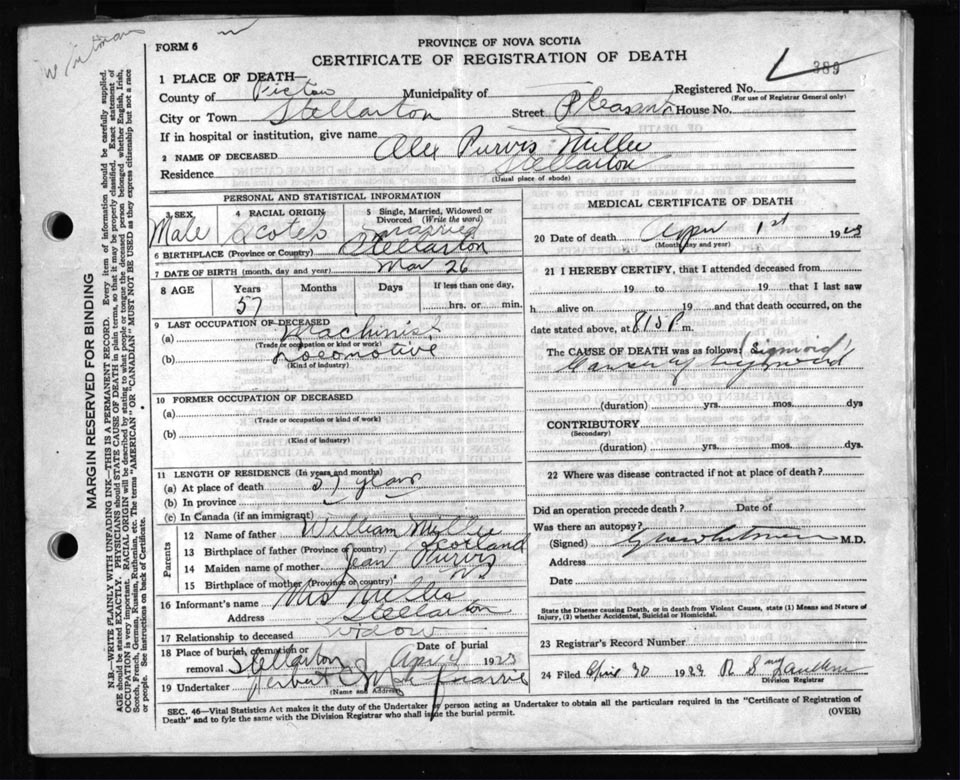 Whitman
FORM 6
PROVINCE OF NOVA SCOTIA
CERTIFICATE OF REGISTRATION OF DEATH
389
1 PLACE OF DEATH—
County of Pictou Municipality of — Registered No.
(For use of Registrar General only)
City or Town Stellarton Street Pleasant House No.
If in hospital or institution, give name
2 NAME OF DECEASED Alex Purvis Millie
Residence Stellarton
(Usual place of abode)
PERSONAL AND STATISTICAL INFORMATION
3 SEX 4 RACIAL ORIGIN 5 Single, Married, Widowed or Divorced (Write the word)
Male Scotch Married
6 BIRTHPLACE (Province or Country) Stellarton
7 DATE OF BIRTH (month, day and year) Mar 26
8 AGE Years Months Days If less than one day,
57 hrs. or min.
9 LAST OCCUPATION OF DECEASED
(a) Machinist
(Trade or occupation or kind of work)
(b) Locomotive
(Kind of industry)
10 FORMER OCCUPATION OF DECEASED
(a)
(Trade or occupation or kind of work)
(b)
(Kind of industry)
11 LENGTH OF RESIDENCE (In years and months)
(a) At place of death 57 years
(b) In province
(c) In Canada (if an immigrant)
Parents
12 Name of father William Millie
13 Birthplace of father (Province or country) Scotland
14 Maiden name of mother Jean Purvis
15 Birthplace of mother (Province or country) NS
16 Informant's name Mrs Millie
Address Stellarton
17 Relationship to deceased Widow
18 Place of burial, cremation or removal Stellarton Date of burial April 4 1923
19 Undertaker Herbert
(Name and Address)
MEDICAL CERTIFICATE OF DEATH
20 Date of death April 1st 19
(Month, day and year)
21 I HEREBY CERTIFY, that I attended deceased from
19 to 19 that I last saw
h alive on 19 and that death occurred, on
date stated above, at 815 P. m.
The CAUSE OF DEATH was as follows: (Sigmoid)
Cancer of Sigmoid
(duration) yrs. mos. dys
CONTRIBUTORY
(Secondary)
(duration) yrs. mos. dys.
22 Where was disease contracted if not at place of death?
Did an operation precede death? Date of
Was there an autopsy?
(Signed) Whitman M.D.
Address
Date
State the Disease causing Death, or in death from Violent Causes, state (1) Means and Nature of Injury, (2) whether Accidental, Suicidal or Homicidal.
23 Registrar's Record Number
24 Filed April 30 19 R S
Division Registrar
SEC. 46—Vital Statistics Act makes it the duty of the Undertaker or person acting as Undertaker to obtain all the particulars required in the "Certificate of Registration of
Death" and to fyle the same with the Division Registrar who shall issue the burial permit.
(OVER)
MARGIN RESERVED FOR BINDING
N.B.—WRITE PLAINLY WITH UNFADING INK—THIS IS A PERMANENT RECORD. Every item of information should be carefully supplied.
AGE should be stated EXACTLY. PHYSICIANS should STATE CAUSE OF DEATH in plain terms, so that it may be properly classified. Exact statement of
OCCUPATION is very important. RACIAL ORIGIN will be described by stating to what people or tongue the deceased person belonged whether English, Irish,
Scotch, French, German, Russian, Ruthenian, etc. The terms "AMERICAN" OR "CANADIAN" MUST NOT BE USED as they express citizenship but not a race
or people. See instructions on back of Certificate.